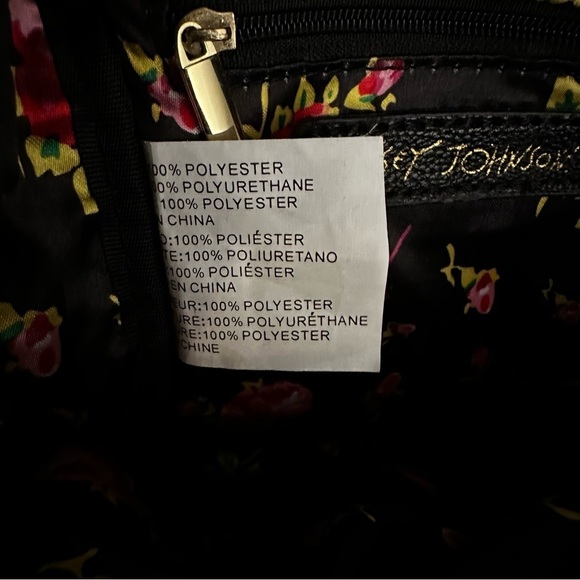 00% POLYESTER
00% POLYURETHANE
100% POLYESTER
N CHINA
O:100% POLIÉSTER
TE:100% POLIURETANO
100% POLIÉSTER
EN CHINA
EUR:100% POLYESTER
URE:100% POLYURÉTHANE
RE:100% POLYESTER
CHINE
EY JOHNSON